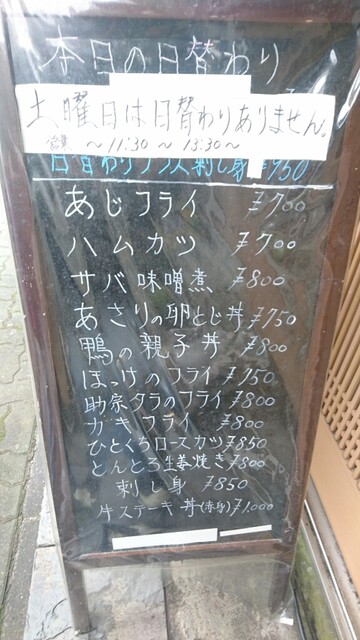 本日の日替わり
土曜日は日替わりありません。
営業 〜11:30〜13:30〜
日替わりプラス刺し身 ¥950
あじフライ ¥700
ハムカツ ¥700
サバ味噌煮 ¥800
あさりの卵とじ丼 ¥750
鴨の親子丼 ¥800
ほっけのフライ ¥750
助宗タラのフライ ¥800
カキフライ ¥800
ひとくちロースカツ ¥850
とんとろ生姜焼き ¥800
刺し身 ¥850
牛ステーキ丼(赤身) ¥1,000